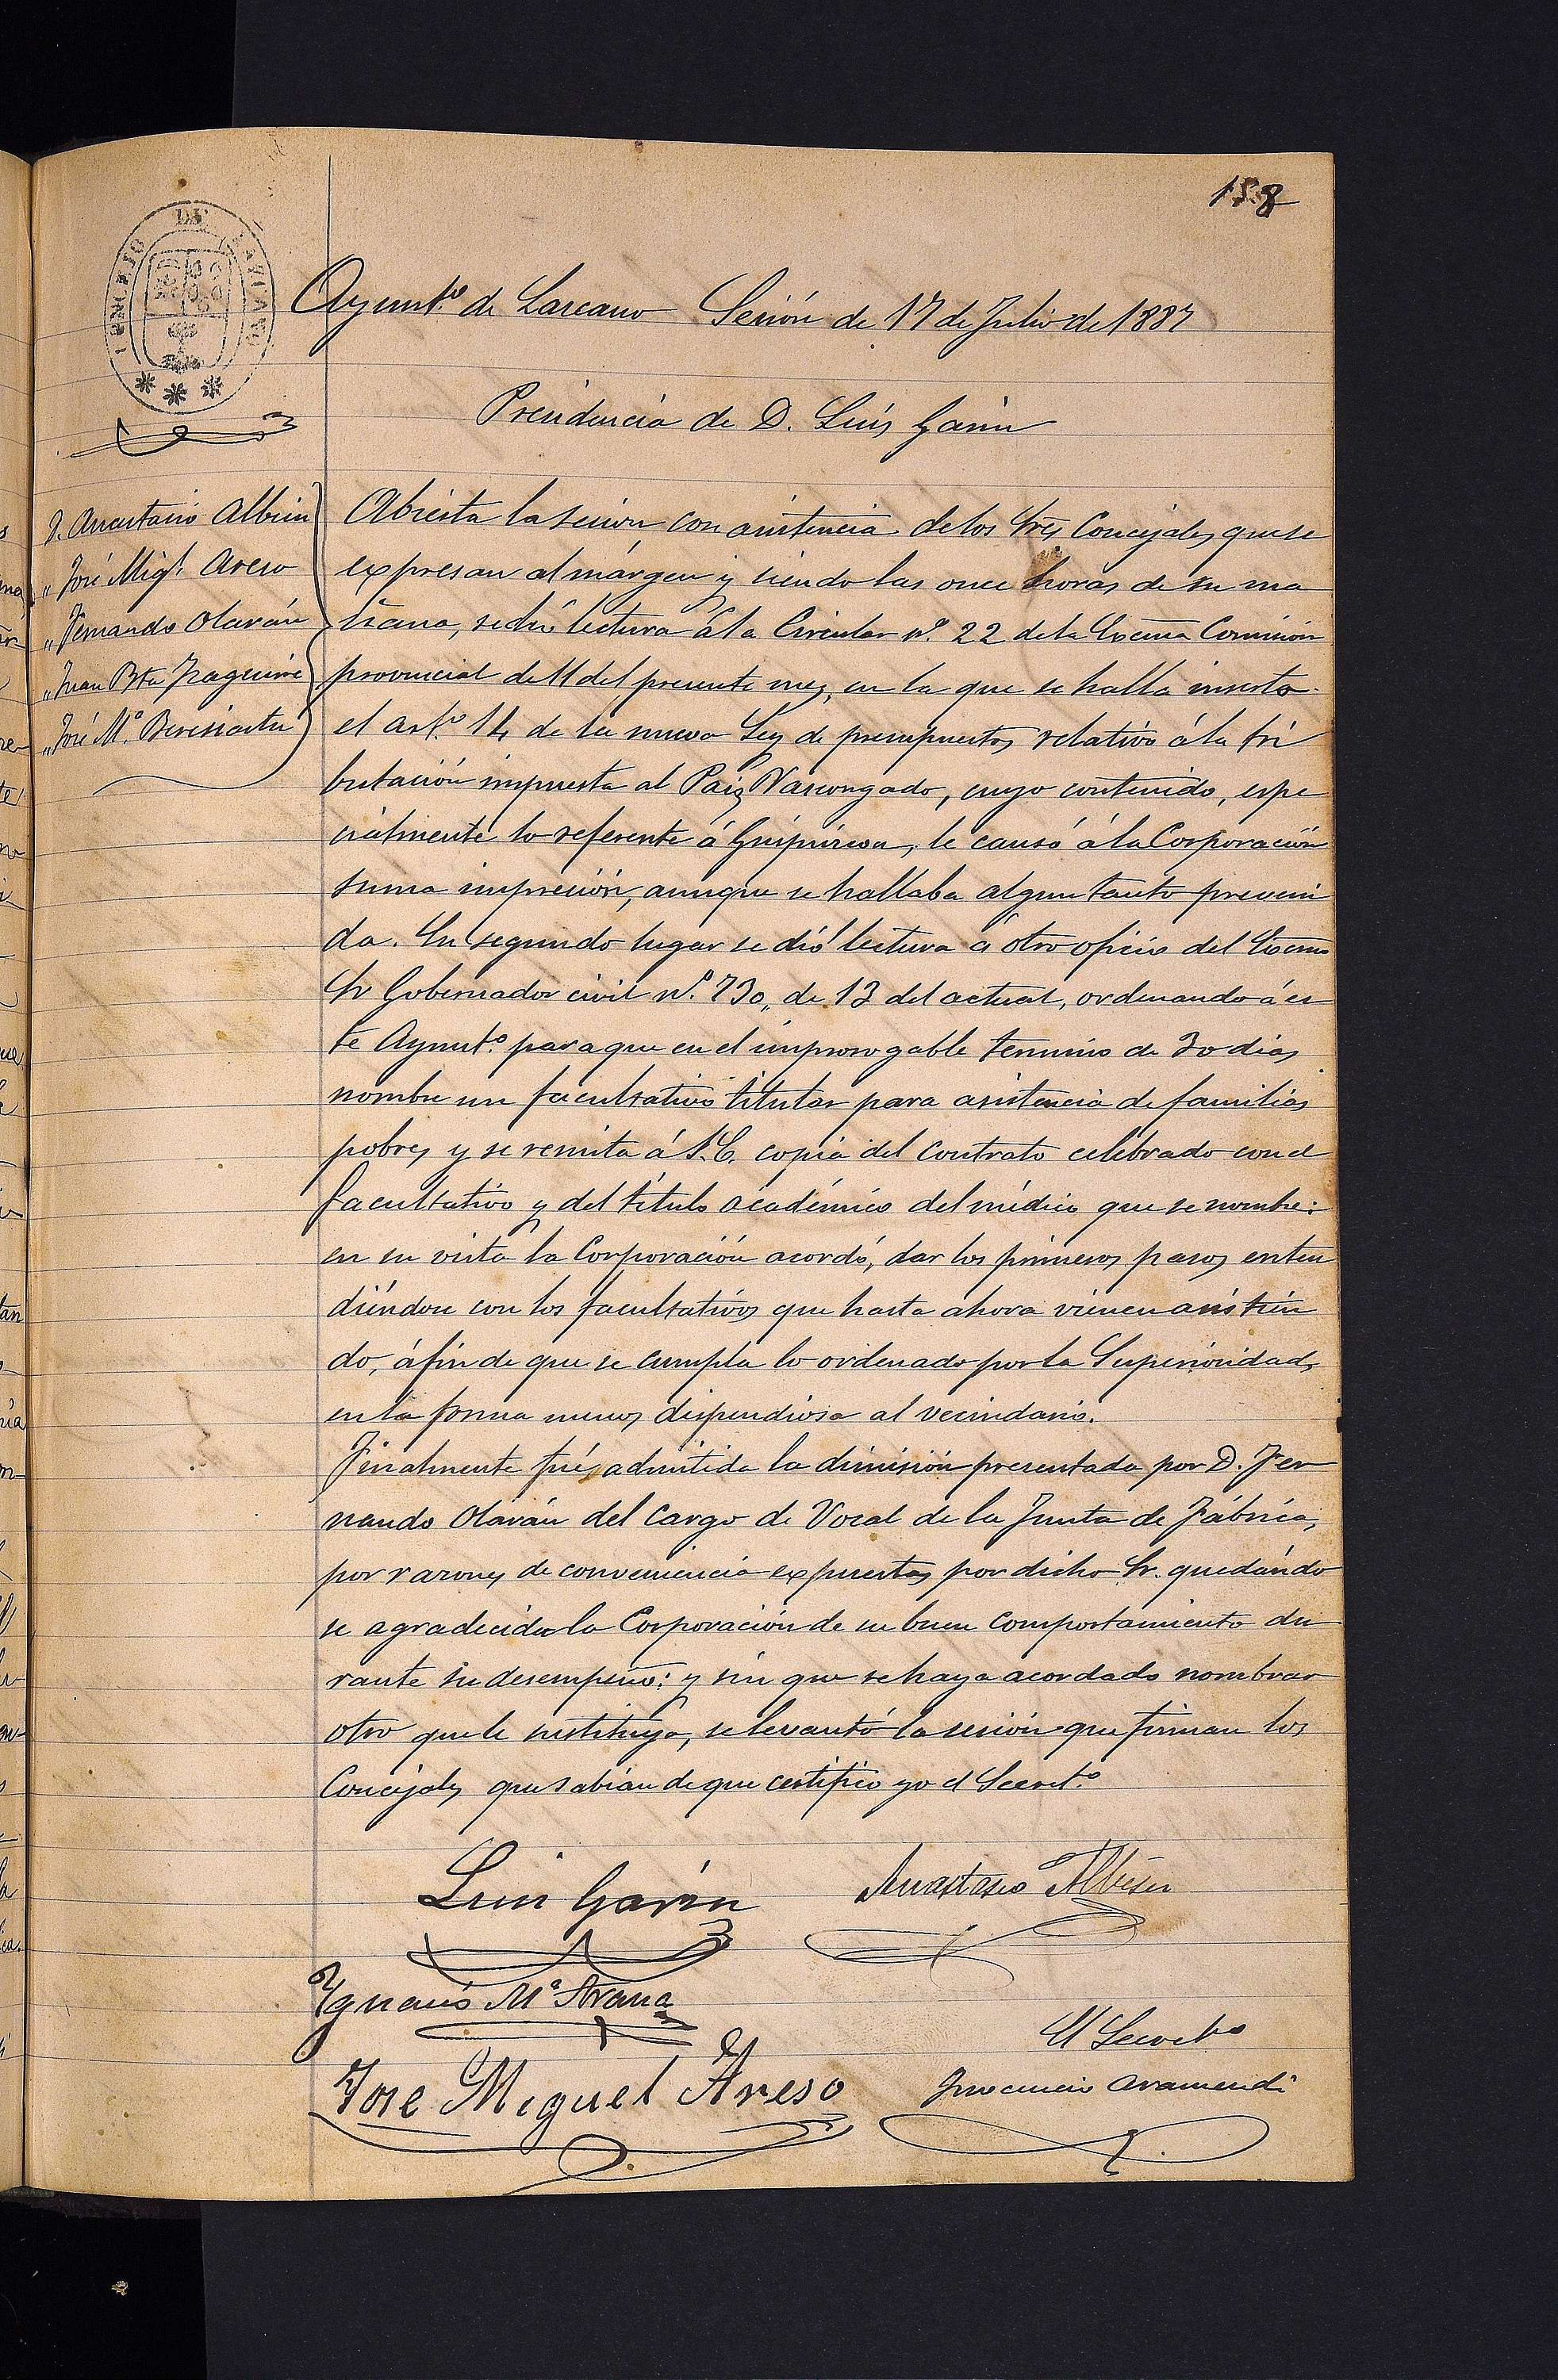 158
CONCEJO DE LAZCANO
Ayunt.º de Lazcano Sesión de 17 de Julio de 1887
Presidencia de D. Luis Garin
D. Anastasio Albisu
" José Migl. Areso
" Fernando Olarán
" Juan Bta Iraguirre
" José M.ª Beresiartu
Abierta la sesion con asistencia de los Sres Concejales que se
expresan al márgen y siendo las once horas de su ma
ñana, se dió lectura á la Circular n.º 22 de la Excma Comisión
provincial de 11 del presente mes, en la que se halla inserto
el art.º 14 de la nueva Ley de presupuestos relativo á la tri
butación impuesta al Pais Vascongado, cuyo contenido, espe
cialmente lo referente á Guipúzcoa, le causó á la Corporación
suma impresión, aunque se hallaba algun tanto preveni
da. En segundo lugar se dió lectura á otro oficio del Excmo
Sr Gobernador civil n.º 730, de 13 del actual, ordenando á es
te Ayunt.º para que en el improrogable termino de 30 dias
nombre un facultativo titular para asistencia de familias
pobres y se remita á S.E. copia del contrato celebrado con el
facultativo y del título académico del médico que se nombre:
en su vista la Corporación acordó, dar los primeros pasos enten
diéndose con los facultativos que hasta ahora vienen asistien
do, á fin de que se cumpla lo ordenado por la Superioridad,
en la forma menos dispendiosa al vecindario.
Finalmente fué admitida la dimisión presentada por D. Fer
nando Olarán del cargo de Vocal de la Junta de Fábrica,
por razones de conveniencia expuestas por dicho Sr. quedándo
se agradecida la Corporación de su buen comportamiento du
rante su desempeño: y sin que se haya acordado nombrar
otro que le sustituya, se levantó la sesión que firman los
Concejales que sabian de que certifico yo el Secret.º
Luis Garin
Anastasio Albisu
Ygnacio M.ª Arana
El Secretº
Jose Miguel Areso
Inocencio Aramendi